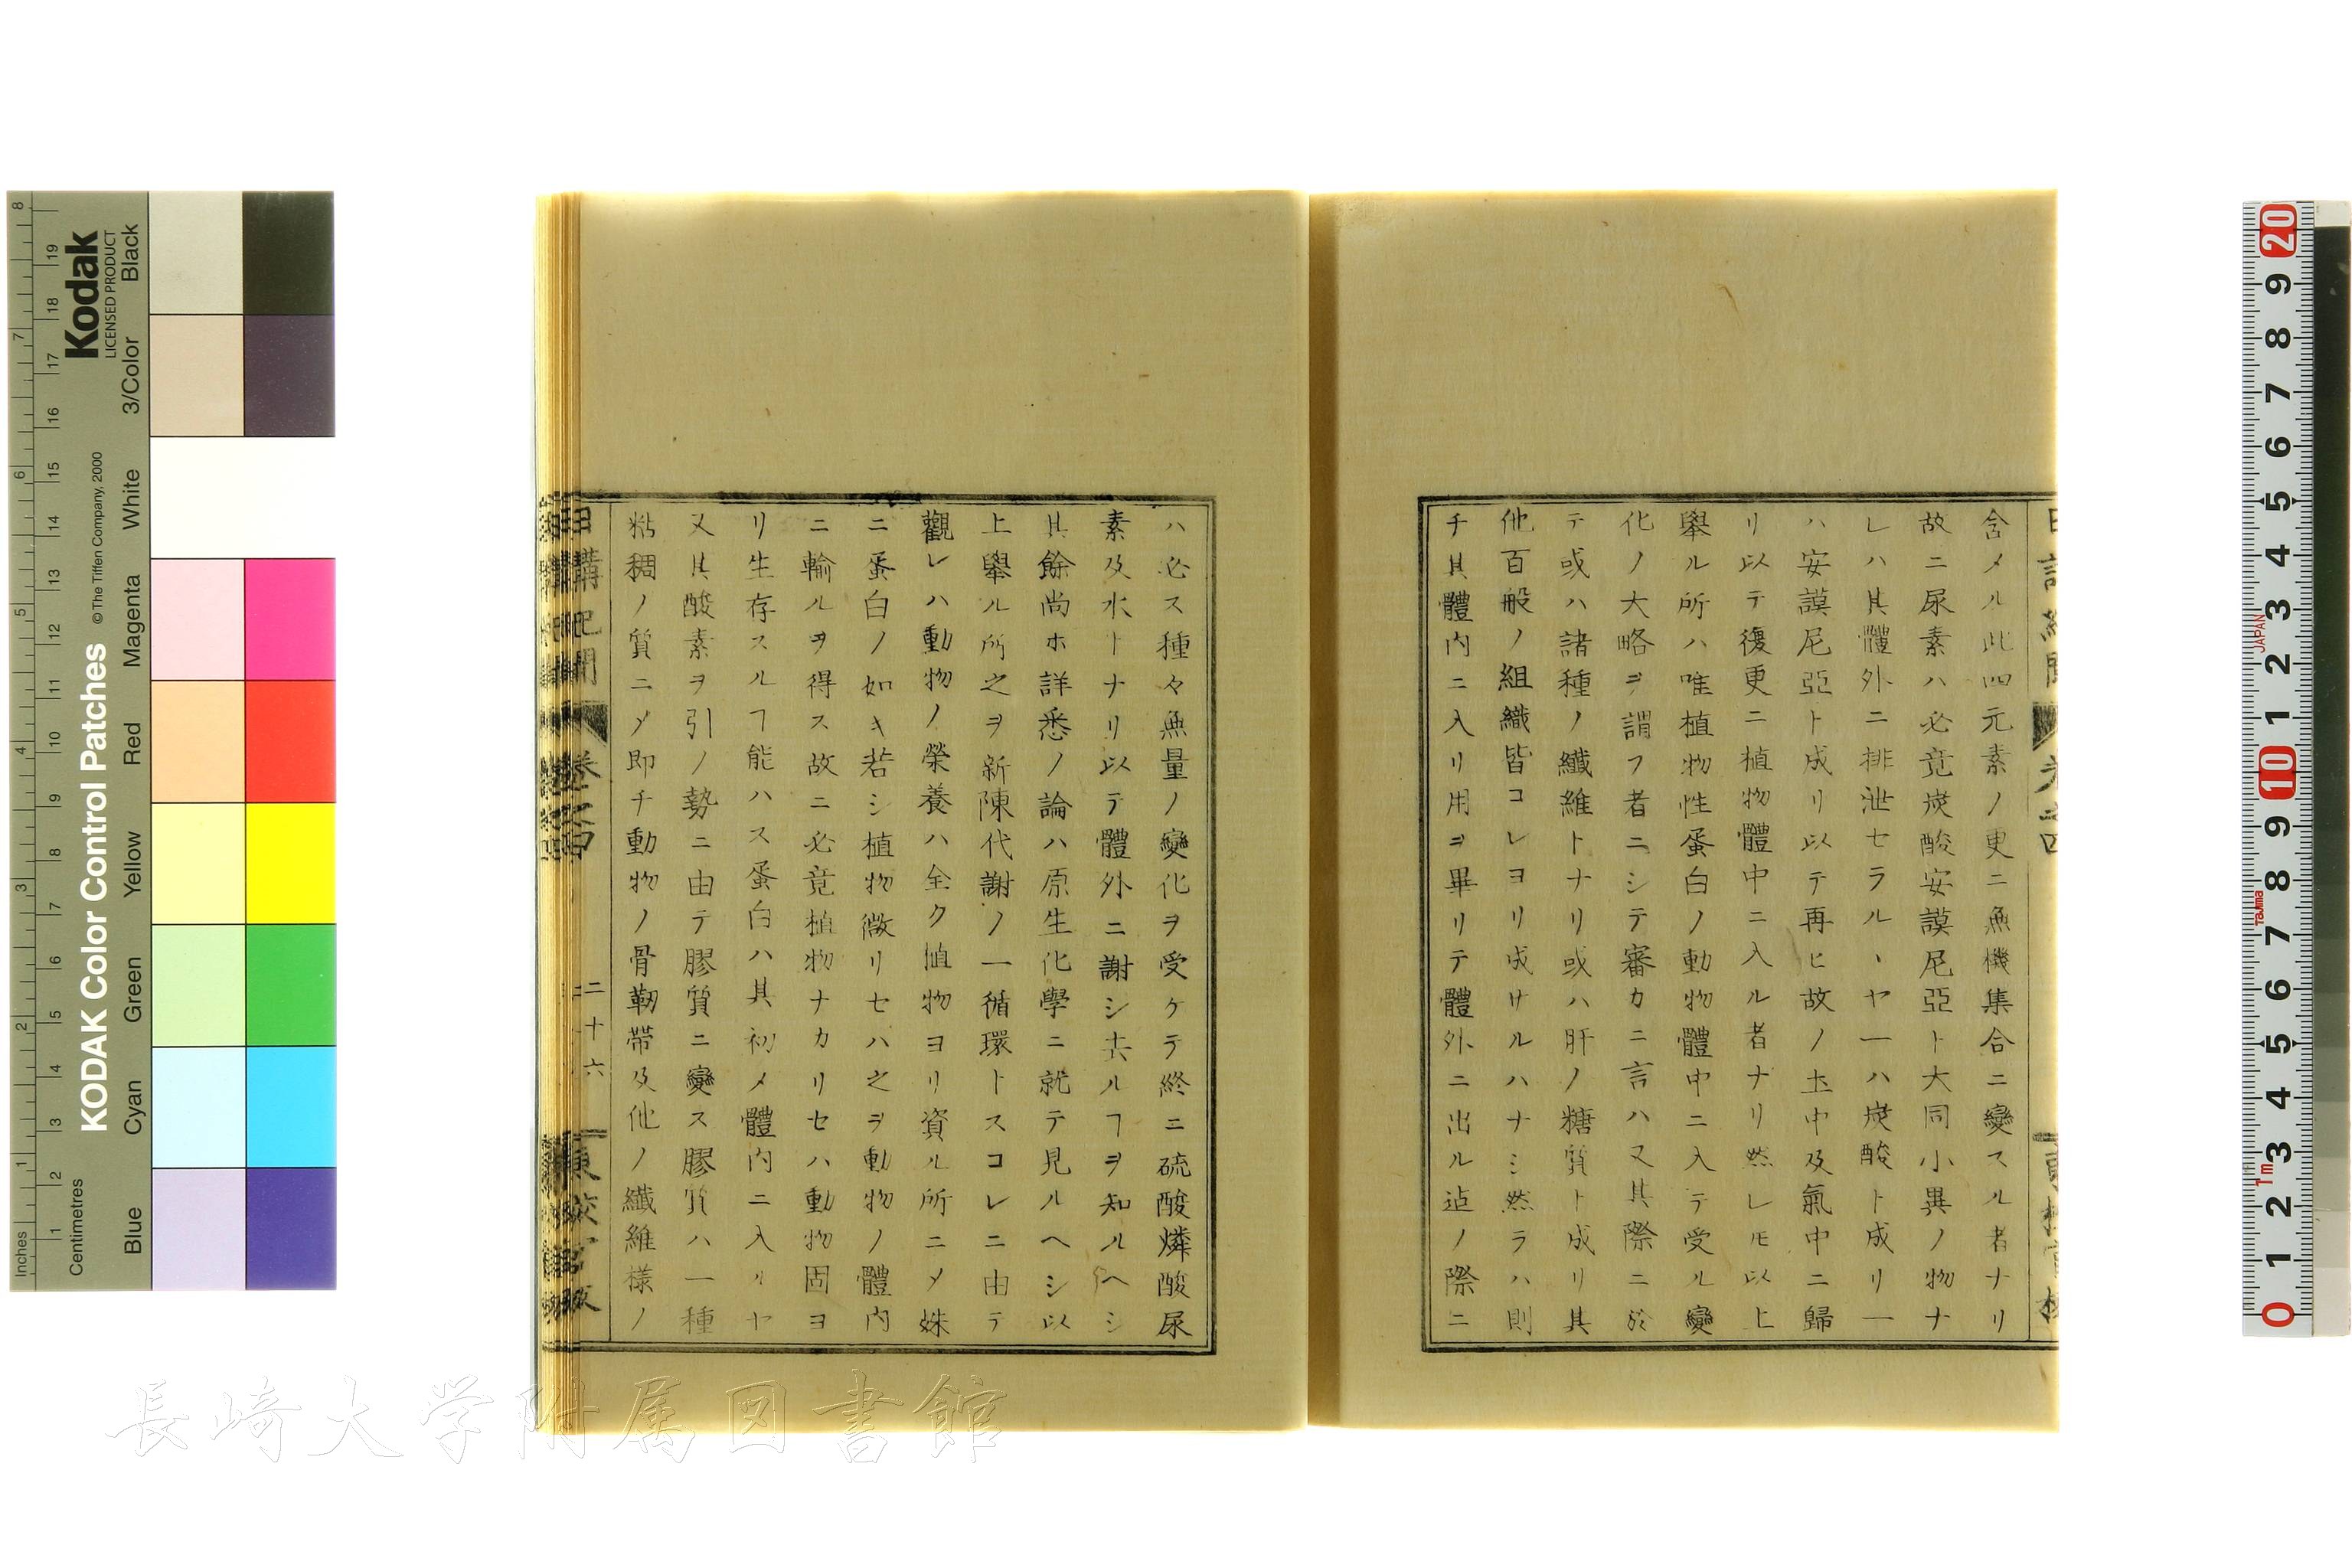 含メル此四元素ノ更ニ無機集合ニ變スル者ナリ
故ニ尿素ハ必竟炭酸安謨尼亞ト大同小異ノ物ナ
レハ其體外ニ排泄セラルヽヤ一ハ炭酸ト成リ一
ハ安謨尼亞ト成リ以テ再ヒ故ノ土中及氣中ニ歸
リ以テ復更ニ植物體中ニ入ル者ナリ然レ𪜈以上
擧ル所ハ唯植物性蛋白ノ動物體中ニ入テ受ル變
化ノ大略ヲ謂フ者ニシテ審カニ言ハ又其際ニ於
テ或ハ諸種ノ纖維トナリ或ハ肝ノ糖質ト成リ其
他百般ノ組織皆コレヨリ成サルハナシ然ラハ則
チ其體内ニ入リ用ヲ畢リテ體外ニ出ル迠ノ際ニ
ハ必ス種々無量ノ變化ヲ受ケテ終ニ硫酸燐酸尿
素及水トナリ以テ體外ニ謝シ去ルヿヲ知ルヘシ
其餘尚ホ詳悉ノ論ハ原生化學ニ就テ見ルヘシ以
上擧ル所之ヲ新陳代謝ノ一循環トスコレニ由テ
觀レハ動物ノ榮養ハ全ク植物ヨリ資ル所ニメ姝
ニ蛋白ノ如キ若シ植物微リセハ之ヲ動物ノ體内
ニ輸ルヲ得ス故ニ必竟植物ナカリセハ動物固ヨ
リ生存スルヿ能ハス蛋白ハ其初メ體内ニ入ルヤ
又其酸素ヲ引ノ勢ニ由テ膠質ニ變ス膠質ハ一種
粘稠ノ質ニメ即チ動物ノ骨靭帶及他ノ纖維樣ノ
日講記聞 卷之四 二十六
KODAK Color Control Patches
© The Tiffen Company, 2000
Kodak
LICENSED PRODUCT
Inches
Centimetres
Blue Cyan Green Yellow Red Magenta White 3/Color Black
長崎大学附属図書館
JAPAN
Tajima
1m